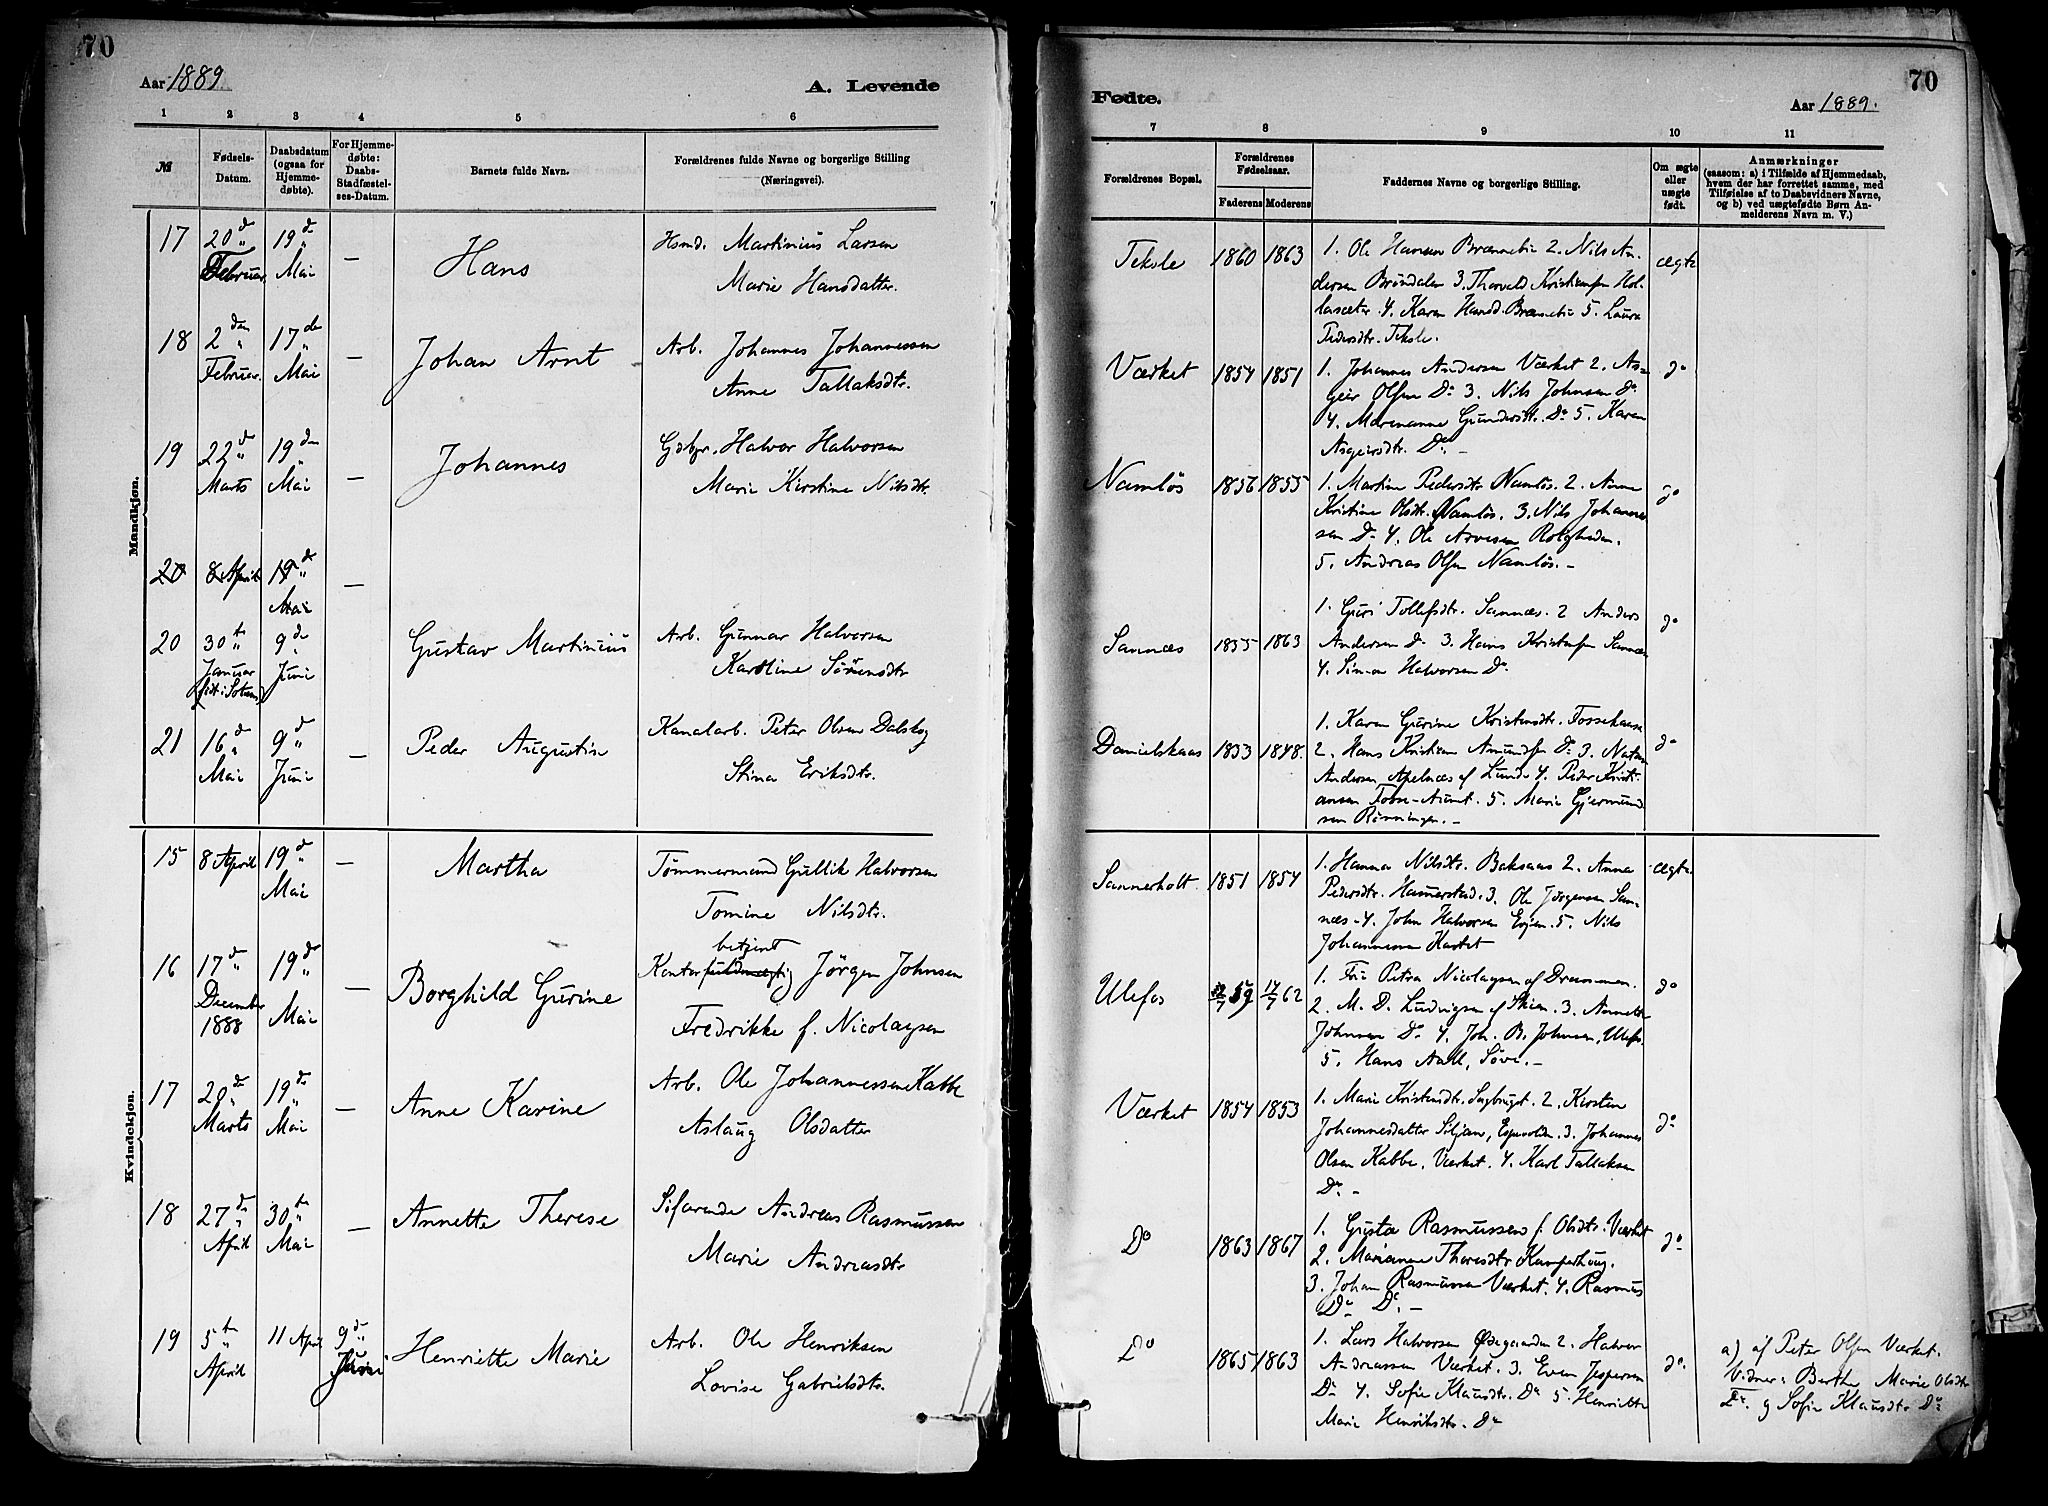 70
Aar 1889.
A. Levende
1 2 3 4 5 6
№
Fødsels-
Datum.
Daabsdatum
(ogsaa for
Hjemme-
døbte).
For Hjemme-
døbte:
Daabs-
Stadfæstel-
ses-Datum.
Barnets fulde Navn.
Forældrenes fulde Navne og borgerlige Stilling
(Næringsvei).
Mandkjøn.
17 20de Februar 19de Mai —
Hans
Hsmd. Martinius Larsen
Marie Hansdatter.
18 2den Februar. 17de Mai —
Johan Arnt
Arb. Johannes Johannessen
Anne Tallaksdtr.
19 22de Marts 19de Mai —
Johannes
Gdbr. Halvor Halvorsen
Marie Kirstine Nilsdtr.
20 8 April 19de Mai —
20 30te Januar 9de Juni
Gustav Martinius
Arb. Gunnar Halvorsen
Karoline Sörensdtr
21 16de Mai 9de Juni —
Peder Augustin
Kanalarb. Peter Olsen Dalsbog
Stina Eriksdtr.
Kvindekjøn.
15 8 April 19de Mai —
Martha
Tömmermand Gullik Halvorsen
Tomine Nilsdtr.
16 17de December 1888 19de Mai —
Borghild Gurine
betjent
Kontorfuldmægtig Jörgen Johnsen
Fredrikke f. Nicolaysen
17 20de Marts 19de Mai —
Anne Karine
Arb. Ole Johannessen Kabbe
Aslaug Olsdatter
18 27de April 30te Mai —
Annette Therese
Andreas Rasmussen
Marie Andreasdtr
19 5te April 11 April 9de Juni
Henriette Marie
Arb. Ole Henriksen
Lovise Gabrielsdtr.
70
Fødte.
Aar 1889.
7 8 9 10 11
Forældrenes Bopæl.
Forældrenes
Fødselsaar.
Faderens Moderens
Faddernes Navne og borgerlige Stilling.
Om ægte
eller
uægte
født.
Anmærkninger
(saasom: a) i Tilfælde af Hjemmedaab,
hvem der har forrettet samme, med
Tilføielse af to Daabsvidners Navne,
og b) ved uægtefødte Børn An-
melderens Navn m. V.)
Teksle 1860 1863 ægte
1. Ole Hansen Brænnebu 2. Nils An-
dersen Bröndalen 3. Thorvald Kristensen Hol-
lasæter 4. Karen Hansd. Brænnebu 5. Laura
Pedersdtr. Teksle.
Værket 1854 1851 do
1. Johannes Andersen Værket 2. As-
geir Olsen Do 3. Nils Johnsen Do.
4. Marenanne Gundersdtr. Do 5. Karen
Asgeirsdtr. Do. —
Namlös 1856 1855 do
1. Martine Pedersdtr Namlös. 2. Anne
Kristine Olsdtr. Namlös. 3. Nils Johannes-
sen Do 4. Ole Arvesen Roligheden.
5. Andreas Olsen Namlös. —
Sannæs 1855 1863 do
1. Guri Tollefsdtr. Sannæs. 2 Anders
Andersen Do 3. Hans Kristensen Sannæs
4. Simon Halvorsen Do.
Danielskaas 1833 1848. do
1. Karen Gurine Kristensdtr.
2. Hans Kristian Amundsen Do 3.
Andersen Apelnæs af Lunde 4. Peder Kristi-
ansen 5. Marie Gjermund
sen Rönningen. —
Sannerholt. 1851 1854 ægte
1. Hanna Nilsdtr. Baksaas 2. Anna
Pedersdtr. Hammerstad. 3. Ole Jörgensen San-
næs. 4. John Halvorsen 5. Nils
Johannessen
Ulefos 59 17/7 62 do
1. Frk Petra Nicolaysen af Drammen.
2. M. D. Ludvigsen af Skien. 3. Annette
Johnsen Do 4. Joh. B. Johnsen, Ulefos.
5. Hans Aall, Söve. —
Værket 1854 1853 do
1. Marie Kristensdtr. Sagbruget. 2. Kirsten
Johannesdatter Siljan, 3. Johannes
Olsen Kabbe, Værket. 4. Karl Tallaksen
Do —
Do 1863 1867 do
1. Gusta Rasmussen f. Olsdtr. Værket
2. Marianne Theresdtr Kamperhaug.
3. Johan Rasmussen Værket. 4. Rasmus
Do Do. —
Do 1865 1863 do.
1. Lars Halvorsen Ødegaarden 2. Halvor
Andreassen Værket. 3. Even Jespersen
Do 4. Sofie Klausdtr. Do 5. Henriette
Marie Henriksdtr. Do
a) af Peter Olsen Værket.
Vidner: Berthe Marie Olsdtr
Do. og Sofie Klausdtr Do